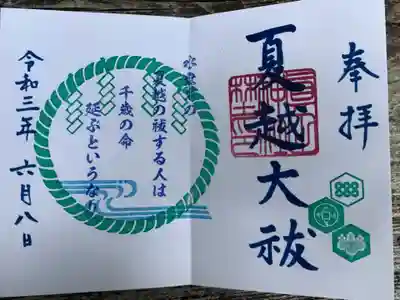 奉拝
夏越大祓
水無月の
夏越の祓する人は
千歳の命
延ぶというなり
令和三年 六月八日